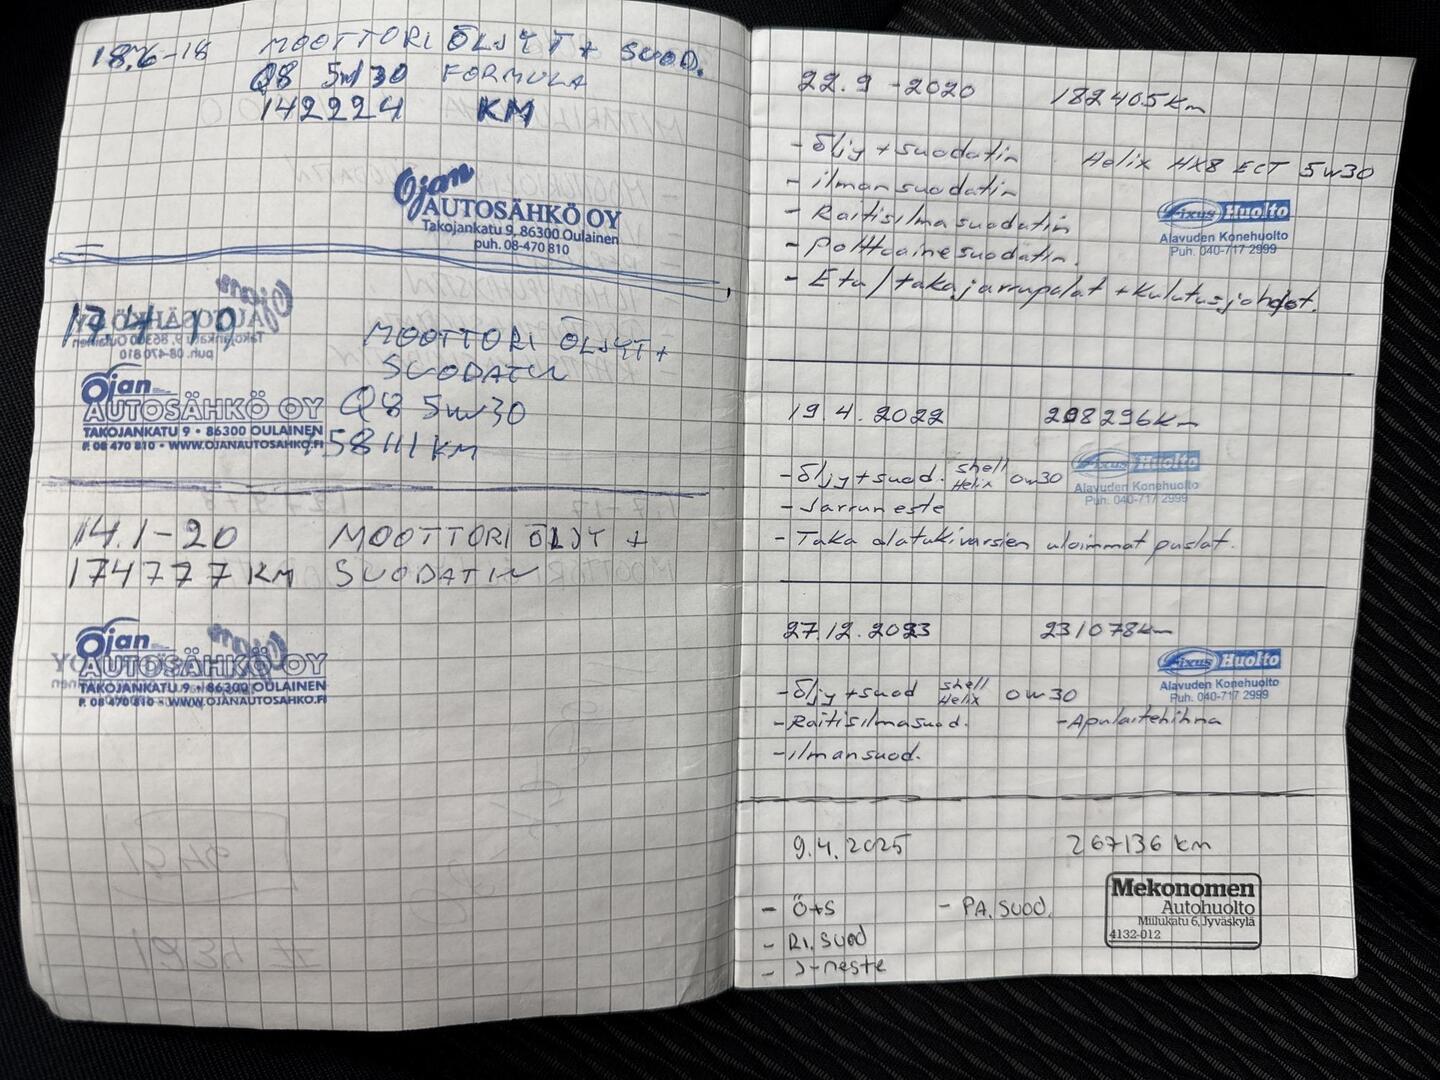 18.6-18 MOOTTORI ÖLJYT + SUOD.
Q8 5W30 FORMULA
142224 KM
Ojan
AUTOSÄHKÖ OY
Takojankatu 9, 86300 Oulainen
puh. 08-470 810
17.4 19 MOOTTORI ÖLJYT +
SUODATIN
Q8 5W30
158111 KM
Ojan
AUTOSÄHKÖ OY
TAKOJANKATU 9 • 86300 OULAINEN
P. 08 470 810 • WWW.OJANAUTOSAHKO.FI
14.1-20 MOOTTORI ÖLJYT +
174777 KM SUODATIN
Ojan
AUTOSÄHKÖ OY
TAKOJANKATU 9 • 86300 OULAINEN
P. 08 470 810 • WWW.OJANAUTOSAHKO.FI
22.9 -2020 182405km
- Öljy + suodatin Helix HX8 ECT 5w30
- ilmansuodatin
- Raitisilmasuodatin
- Polttoainesuodatin.
- Etu/taka jarrupalat + kulutusjohdot.
Fixus Huolto
Alavuden Konehuolto
Puh. 040-717 2999
19.4.2022 208296km
- Öljy + suod. Shell Helix 0w30
- Jarruneste
- Taka alatukivarsien uloimmat puslat.
Fixus Huolto
Alavuden Konehuolto
Puh. 040-717 2999
27.12.2023 231078km
- Öljy + suod Shell Helix 0w30
- Raitisilmasuod. - Apulaitehihna
- ilmansuod.
Fixus Huolto
Alavuden Konehuolto
Puh. 040-717 2999
9.4.2025 267136 km
- Ö+S - PA.SUOD.
- RI.SUOD
- J-neste
Mekonomen
Autohuolto
Miilukatu 6, Jyväskylä
4132-012